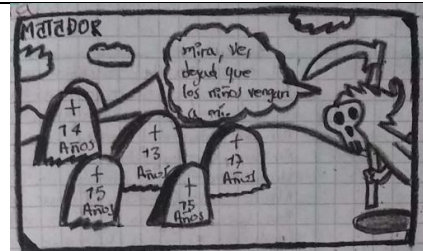 MATADOR
mira, ve,
dejad que
los niños vengan
a mí..
+
14
Años
+
13
Años
+
17
Años
+
15
Años
+
15
Años